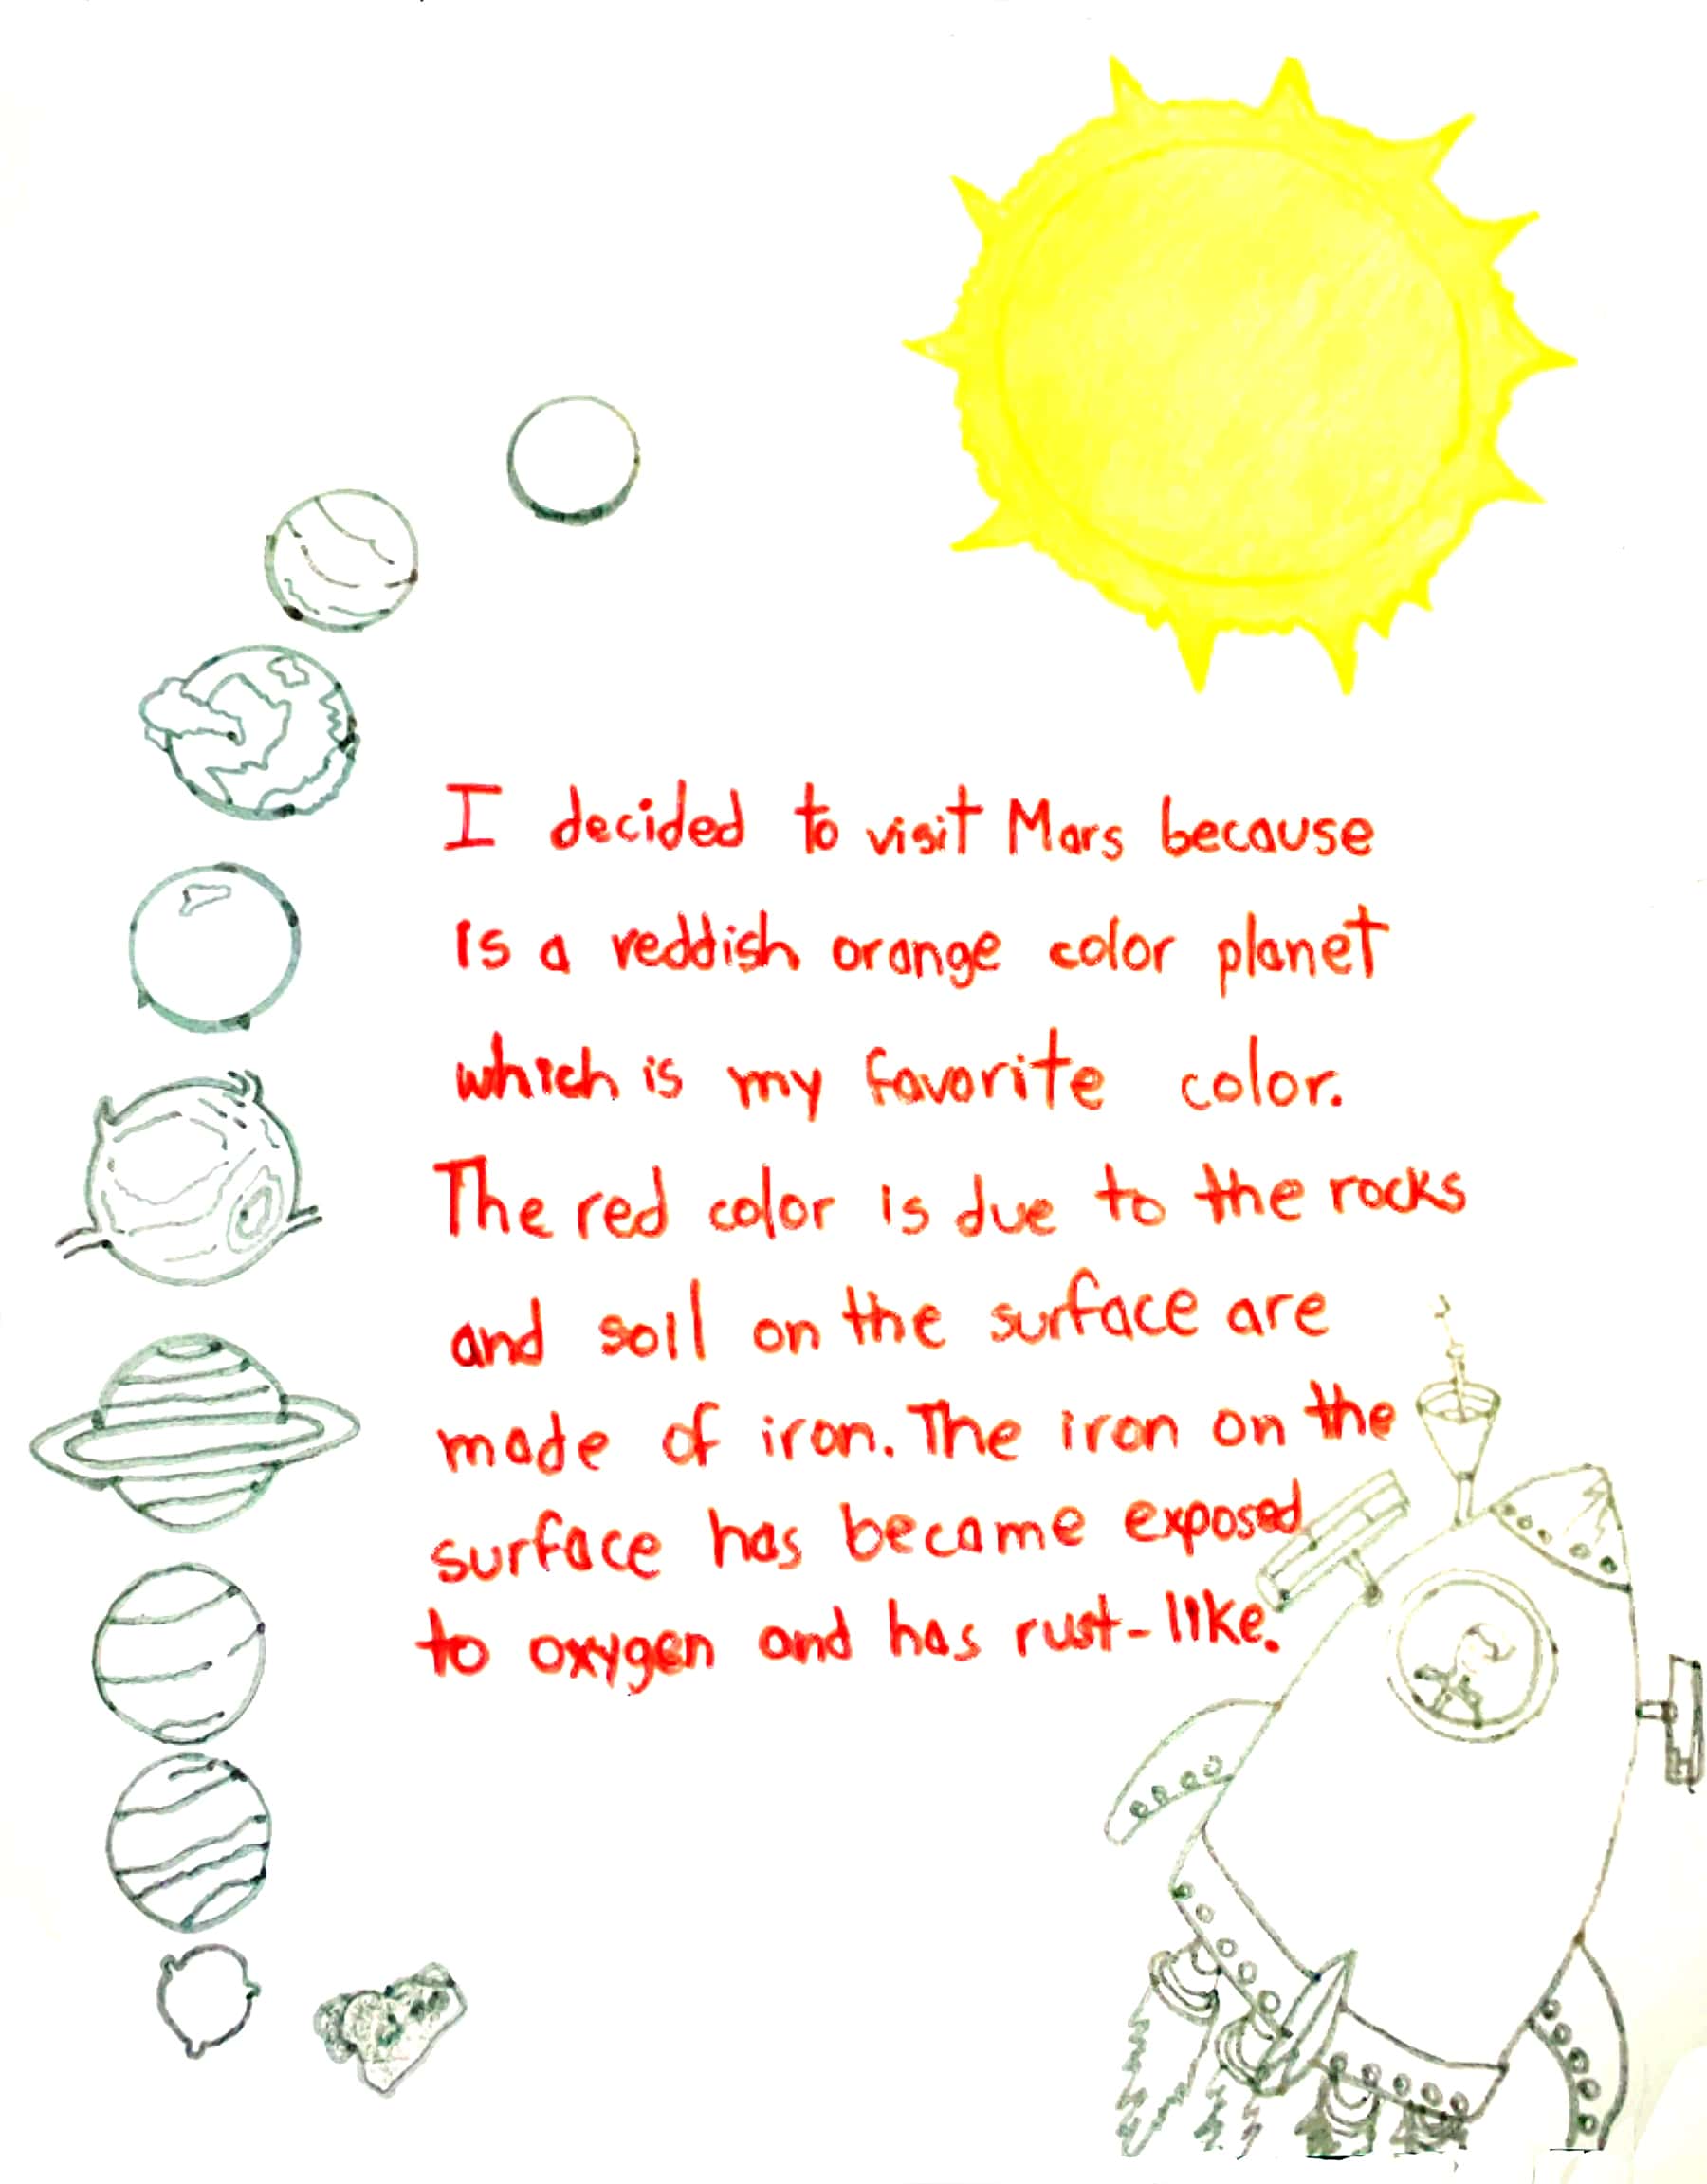 I decided to visit Mars because
is a reddish orange color planet
which is my favorite color.
The red color is due to the rocks
and soil on the surface are
made of iron. The iron on the
surface has became exposed
to oxygen and has rust-like.